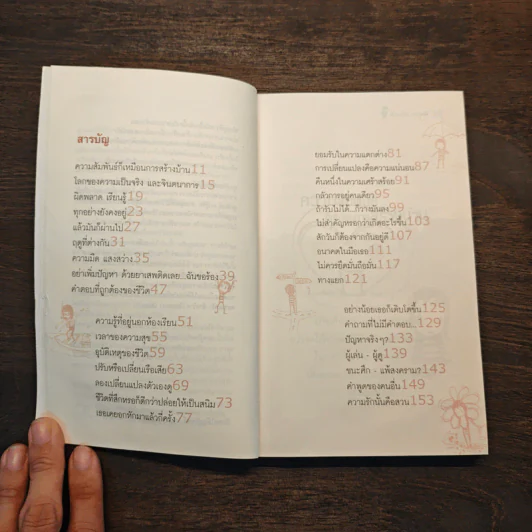 สารบัญ
ความสัมพันธ์ก็เหมือนการสร้างบ้าน 11
โลกของความเป็นจริง และจินตนาการ 15
ผิดพลาด เรียนรู้ 19
ทุกอย่างยังคงอยู่ 23
แล้วมันก็ผ่านไป 27
ฤดูที่ต่างกัน 31
ความมืด แสงสว่าง 35
อย่าเพิ่มปัญหา ด้วยยาเสพติดเลย...ฉันขอร้อง 39
คำตอบที่ถูกต้องของชีวิต 47
ความรู้ที่อยู่นอกห้องเรียน 51
เวลาของความสุข 55
อุบัติเหตุของชีวิต 59
ปรับหรือเปลี่ยนเรือเสีย 63
ลองเปลี่ยนแปลงตัวเองดู 69
ชีวิตที่สึกหรอก็ดีกว่าปล่อยให้เป็นสนิม 73
เธอเคยอกหักมาแล้วกี่ครั้ง 77
ยอมรับในความแตกต่าง 81
การเปลี่ยนแปลงคือความแน่นอน 87
คืนหนึ่งในความเศร้าสร้อย 91
กลัวการอยู่คนเดียว 95
ถ้ารับไม่ได้...ก็วางมันลง 99
ไม่สำคัญหรอกว่าเกิดอะไรขึ้น 103
สักวันก็ต้องจากกันอยู่ดี 107
อนาคตในมือเธอ 111
ไม่ควรยึดมั่นถือมั่น 117
ทางแยก 121
อย่างน้อยเธอก็เติบโตขึ้น 125
คำถามที่ไม่มีคำตอบ... 129
ปัญหาจริงๆ? 133
ผู้เล่น - ผู้ดู 139
ชนะศึก - แพ้สงคราม? 143
คำพูดของคนอื่น 149
ความรักนั้นคือสวน 153